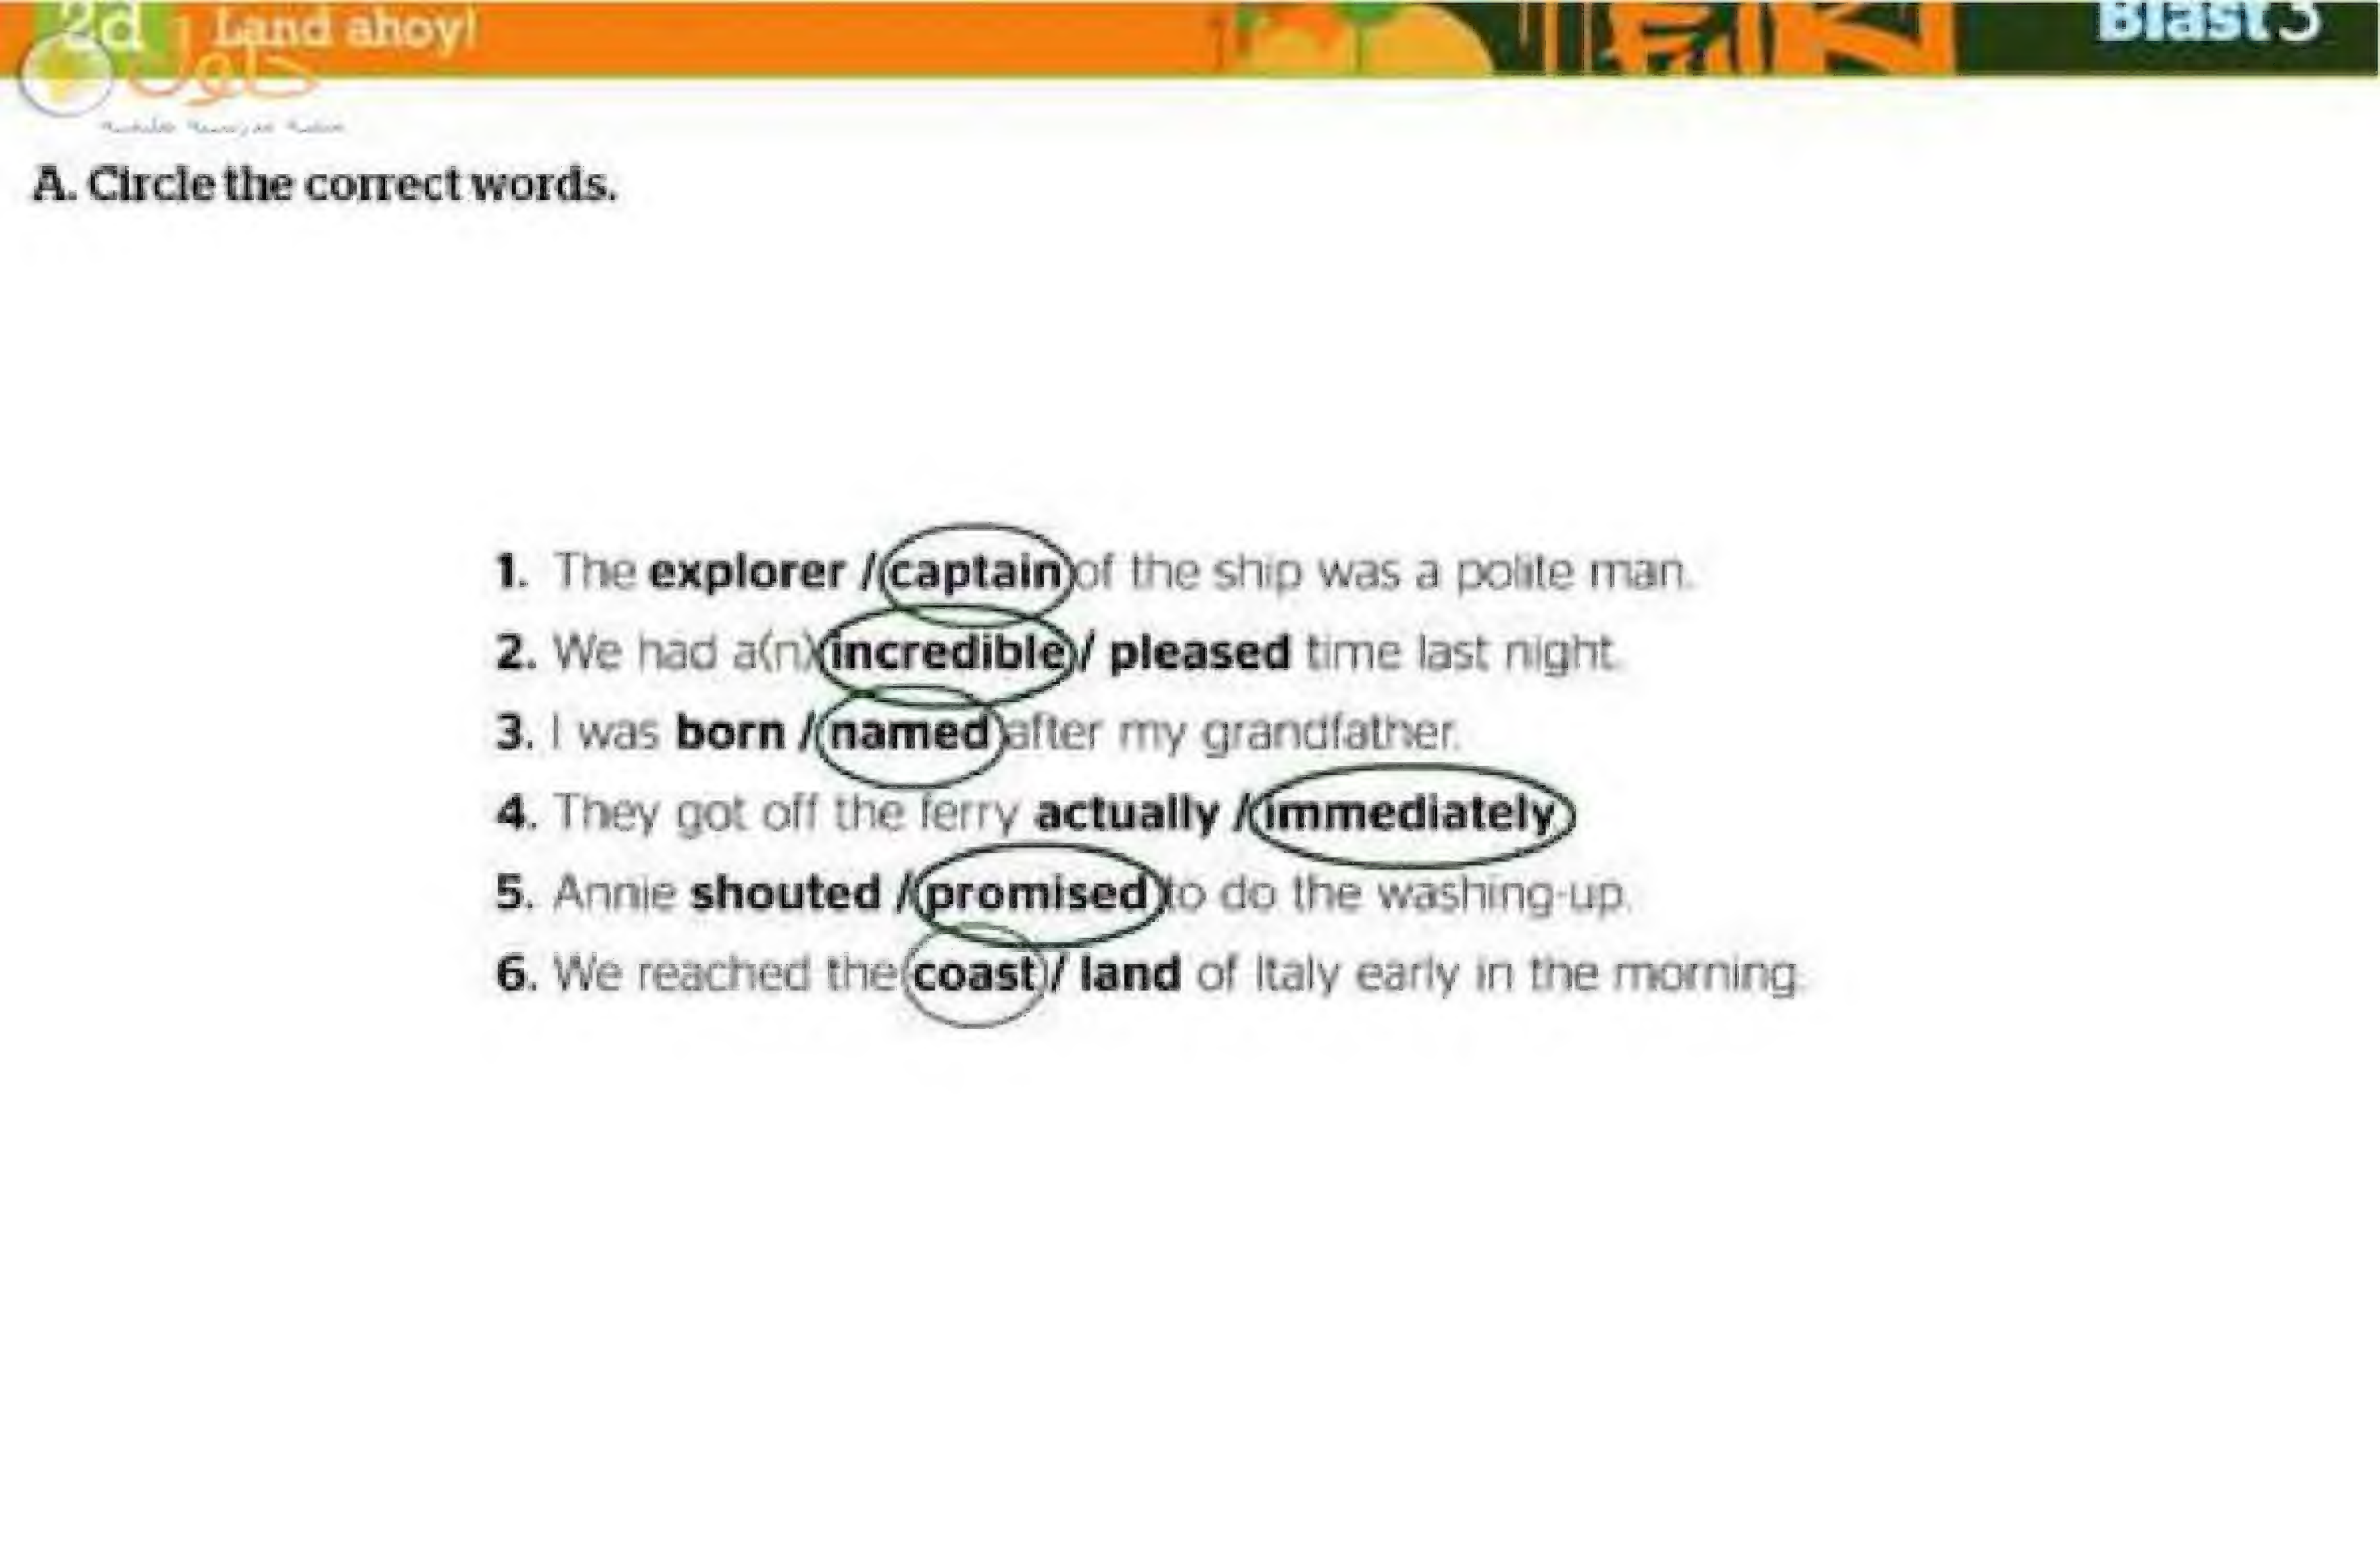 2d Land ahoy!
Blast 3
حلول
A. Circle the correct words.
1. The explorer / captain of the ship was a polite man.
2. We had a(n) incredible / pleased time last night.
3. I was born / named after my grandfather.
4. They got off the ferry actually / immediately
5. Annie shouted / promised to do the washing-up.
6. We reached the coast / land of Italy early in the morning.